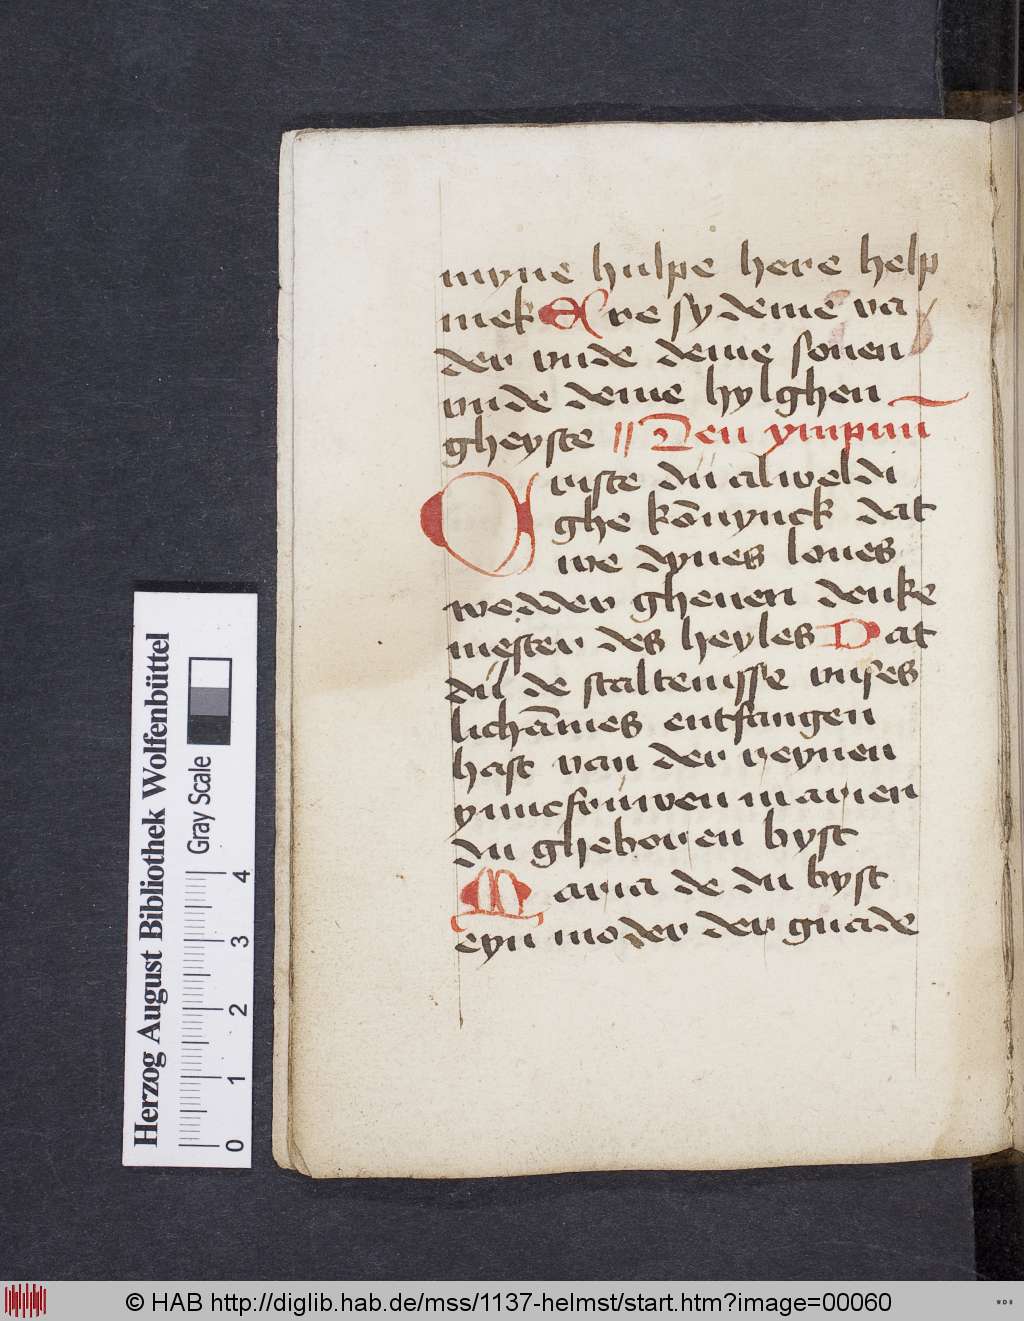 myne hulpe here help
mek Ere sy deme va
der vnde deme sonen
vnde deme hylghen
gheyste Den ympnū
Criste du alweldi
ghe kōnynck dat
we dynes loues
wedder gheuen denke
mester des heyles Dat
du de staltenisse vnses
lichāmes entfangen
hast van der reynen
yuncfruwen marien
du gheboren byst
Maria de du byst
eyn moder der gnade
Herzog August Bibliothek Wolfenbüttel
Gray Scale
0 1 2 3 4
© HAB http://diglib.hab.de/mss/1137-helmst/start.htm?image=00060